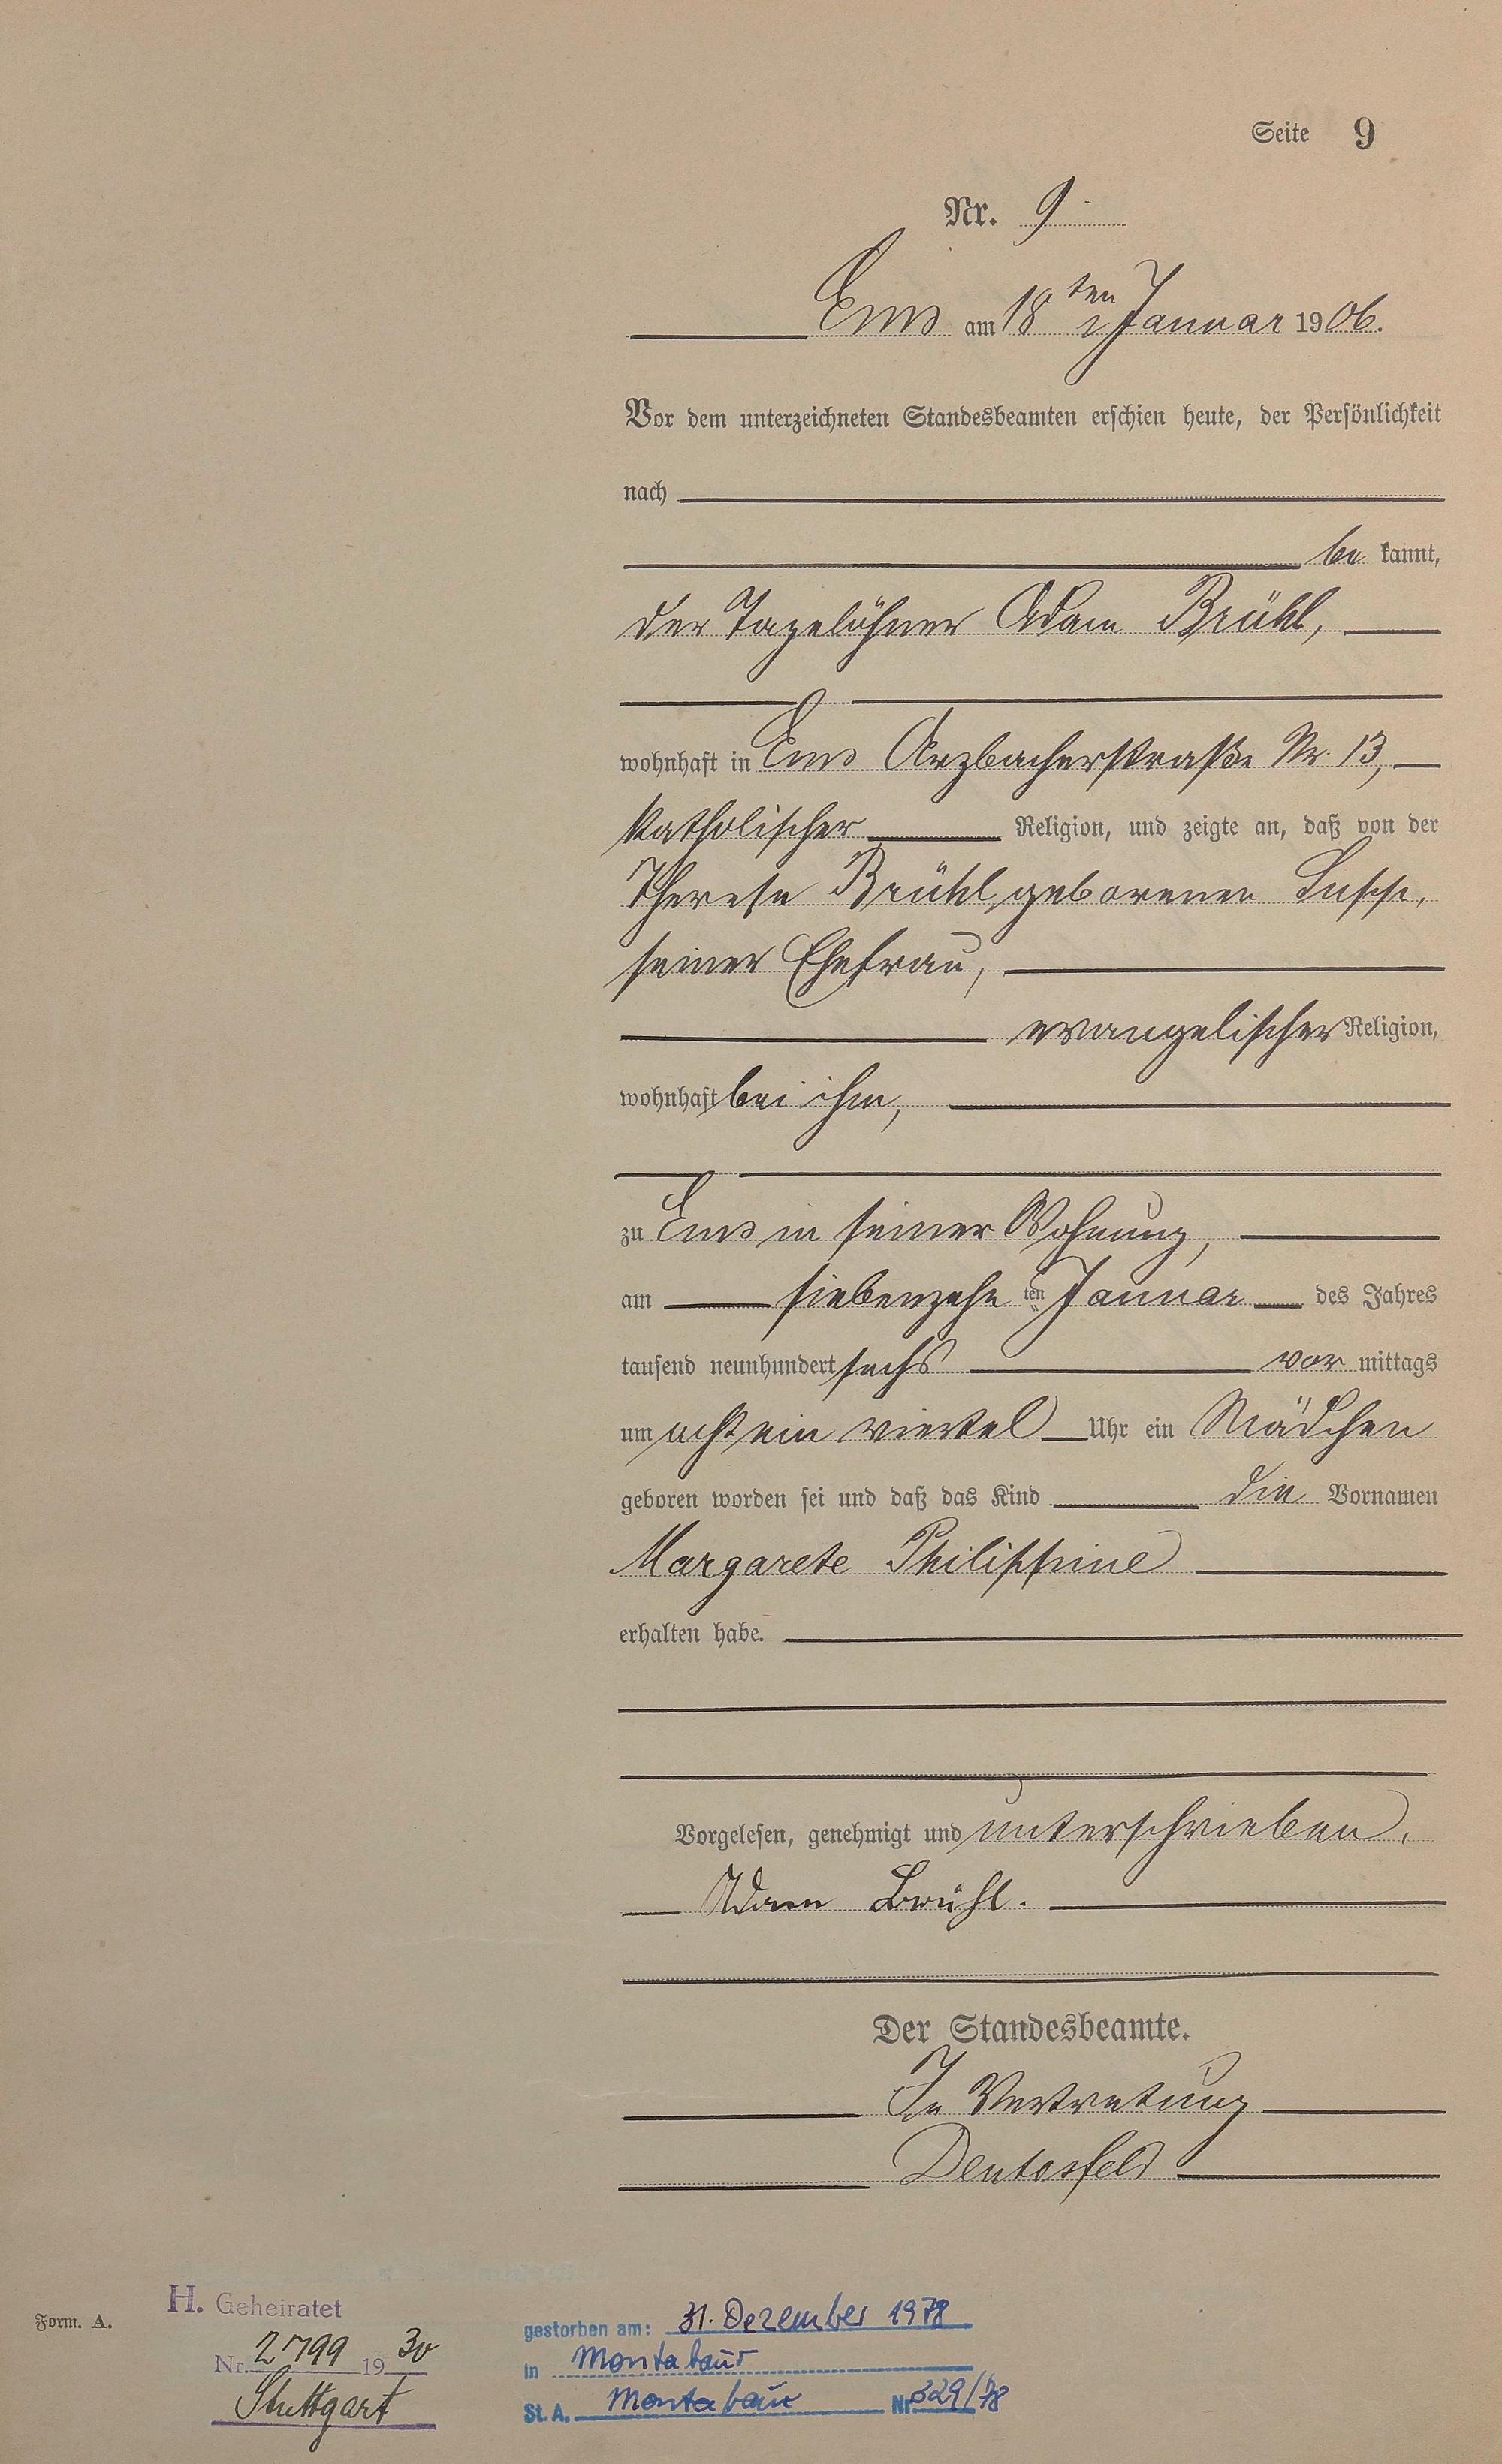 Seite 9
Nr. 9
Ems am 18ten Januar 1906.
Vor dem unterzeichneten Standesbeamten erschien heute, der Persönlichkeit
nach
be kannt,
der Tagelöhner Adam Brühl,
wohnhaft in Ems Arzbacherstraße Nr. 13,
katholischer Religion, und zeigte an, daß von der
Therese Brühl, geborenen
seiner Ehefrau,
evangelischer Religion,
wohnhaft bei ihm,
zu Ems in seiner Wohnung,
am siebenzehn ten Januar des Jahres
tausend neunhundert sechs vor mittags
um acht ein viertel Uhr ein Mädchen
geboren worden sei und daß das Kind die Vornamen
Margarete Philippine
erhalten habe.
Vorgelesen, genehmigt und unterschrieben.
Adam Brühl.
Der Standesbeamte.
In Vertretung
Form. A.
H. Geheiratet
Nr. 2799 1930
Stuttgart
gestorben am: 31. Dezember 1978
in Montabaur
St. A. Montabaur Nr. 329/78